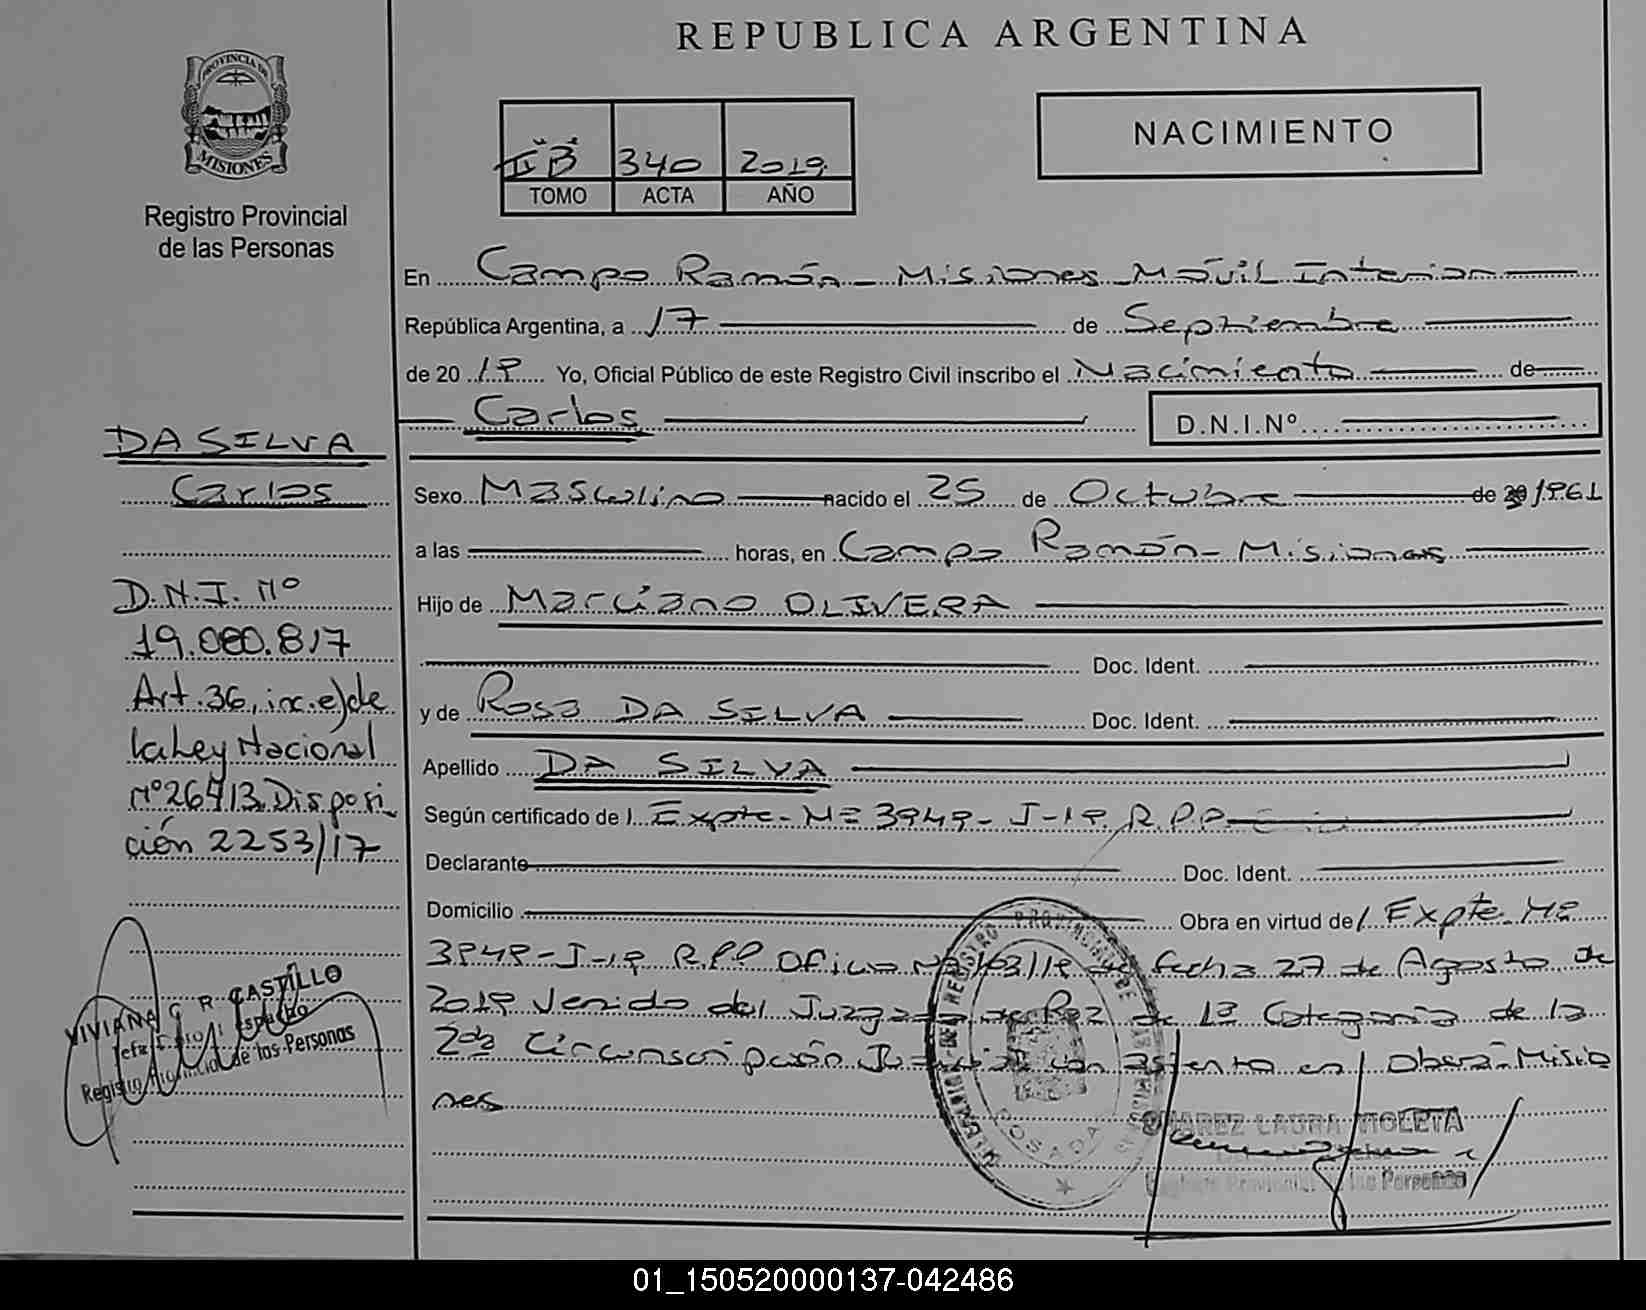 REPUBLICA ARGENTINA
PROVINCIA DE
MISIONES
Registro Provincial
de las Personas
II "B" 340 2019
TOMO ACTA AÑO
NACIMIENTO
En Campo Ramón - Misiones Móvil Interior
República Argentina, a 17 de Septiembre
de 20 19 Yo, Oficial Público de este Registro Civil inscribo el Nacimiento de
Carlos D.N.I.Nº
Sexo Masculino nacido el 25 de Octubre de 1961
a las horas, en Campo Ramón - Misiones
Hijo de Marciano OLIVERA
Doc. Ident.
y de Rosa DA SILVA Doc. Ident.
Apellido DA SILVA
Según certificado de Expte. Nº 3949-J-19 R.P.P.
Declarante Doc. Ident.
Domicilio Obra en virtud de Expte. Nº
3949-J-19 R.P.P. Oficio Nº 103/19 de fecha 27 de Agosto de
2019 Venido del Juzgado de Paz de 1ª Categoria de la
2da Circunscripción Judicial con asiento en Oberá - Misio
nes
DA SILVA
Carlos
D.N.I. Nº
19.080.817
Art. 36, inc. e) de
la Ley Nacional
Nº 26413. Disposi
ción 2253/17
VIVIANA G R CASTILLO
Jefa Dpto Despacho
Registro Provincial de las Personas
REGISTRO PROVINCIAL DE
POSADAS
SUAREZ LAURA VIOLETA
Registro Provincial de las Personas
01_150520000137-042486